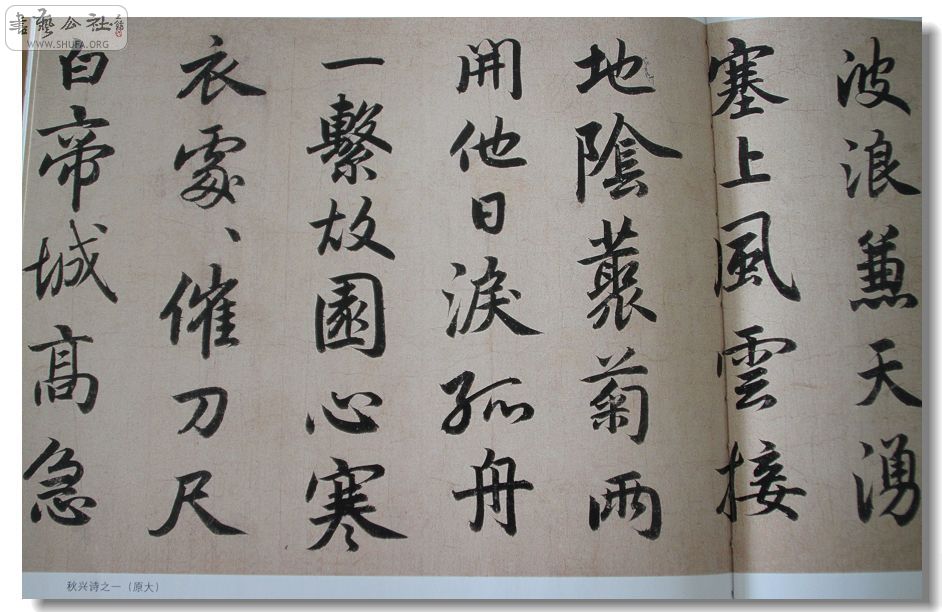 波浪兼天湧
塞上風雲接
地陰叢菊兩
開他日淚孤舟
一繫故園心寒
衣處、催刀尺
白帝城高急
秋兴诗之一（原大）
書藝公社
WWW.SHUFA.ORG